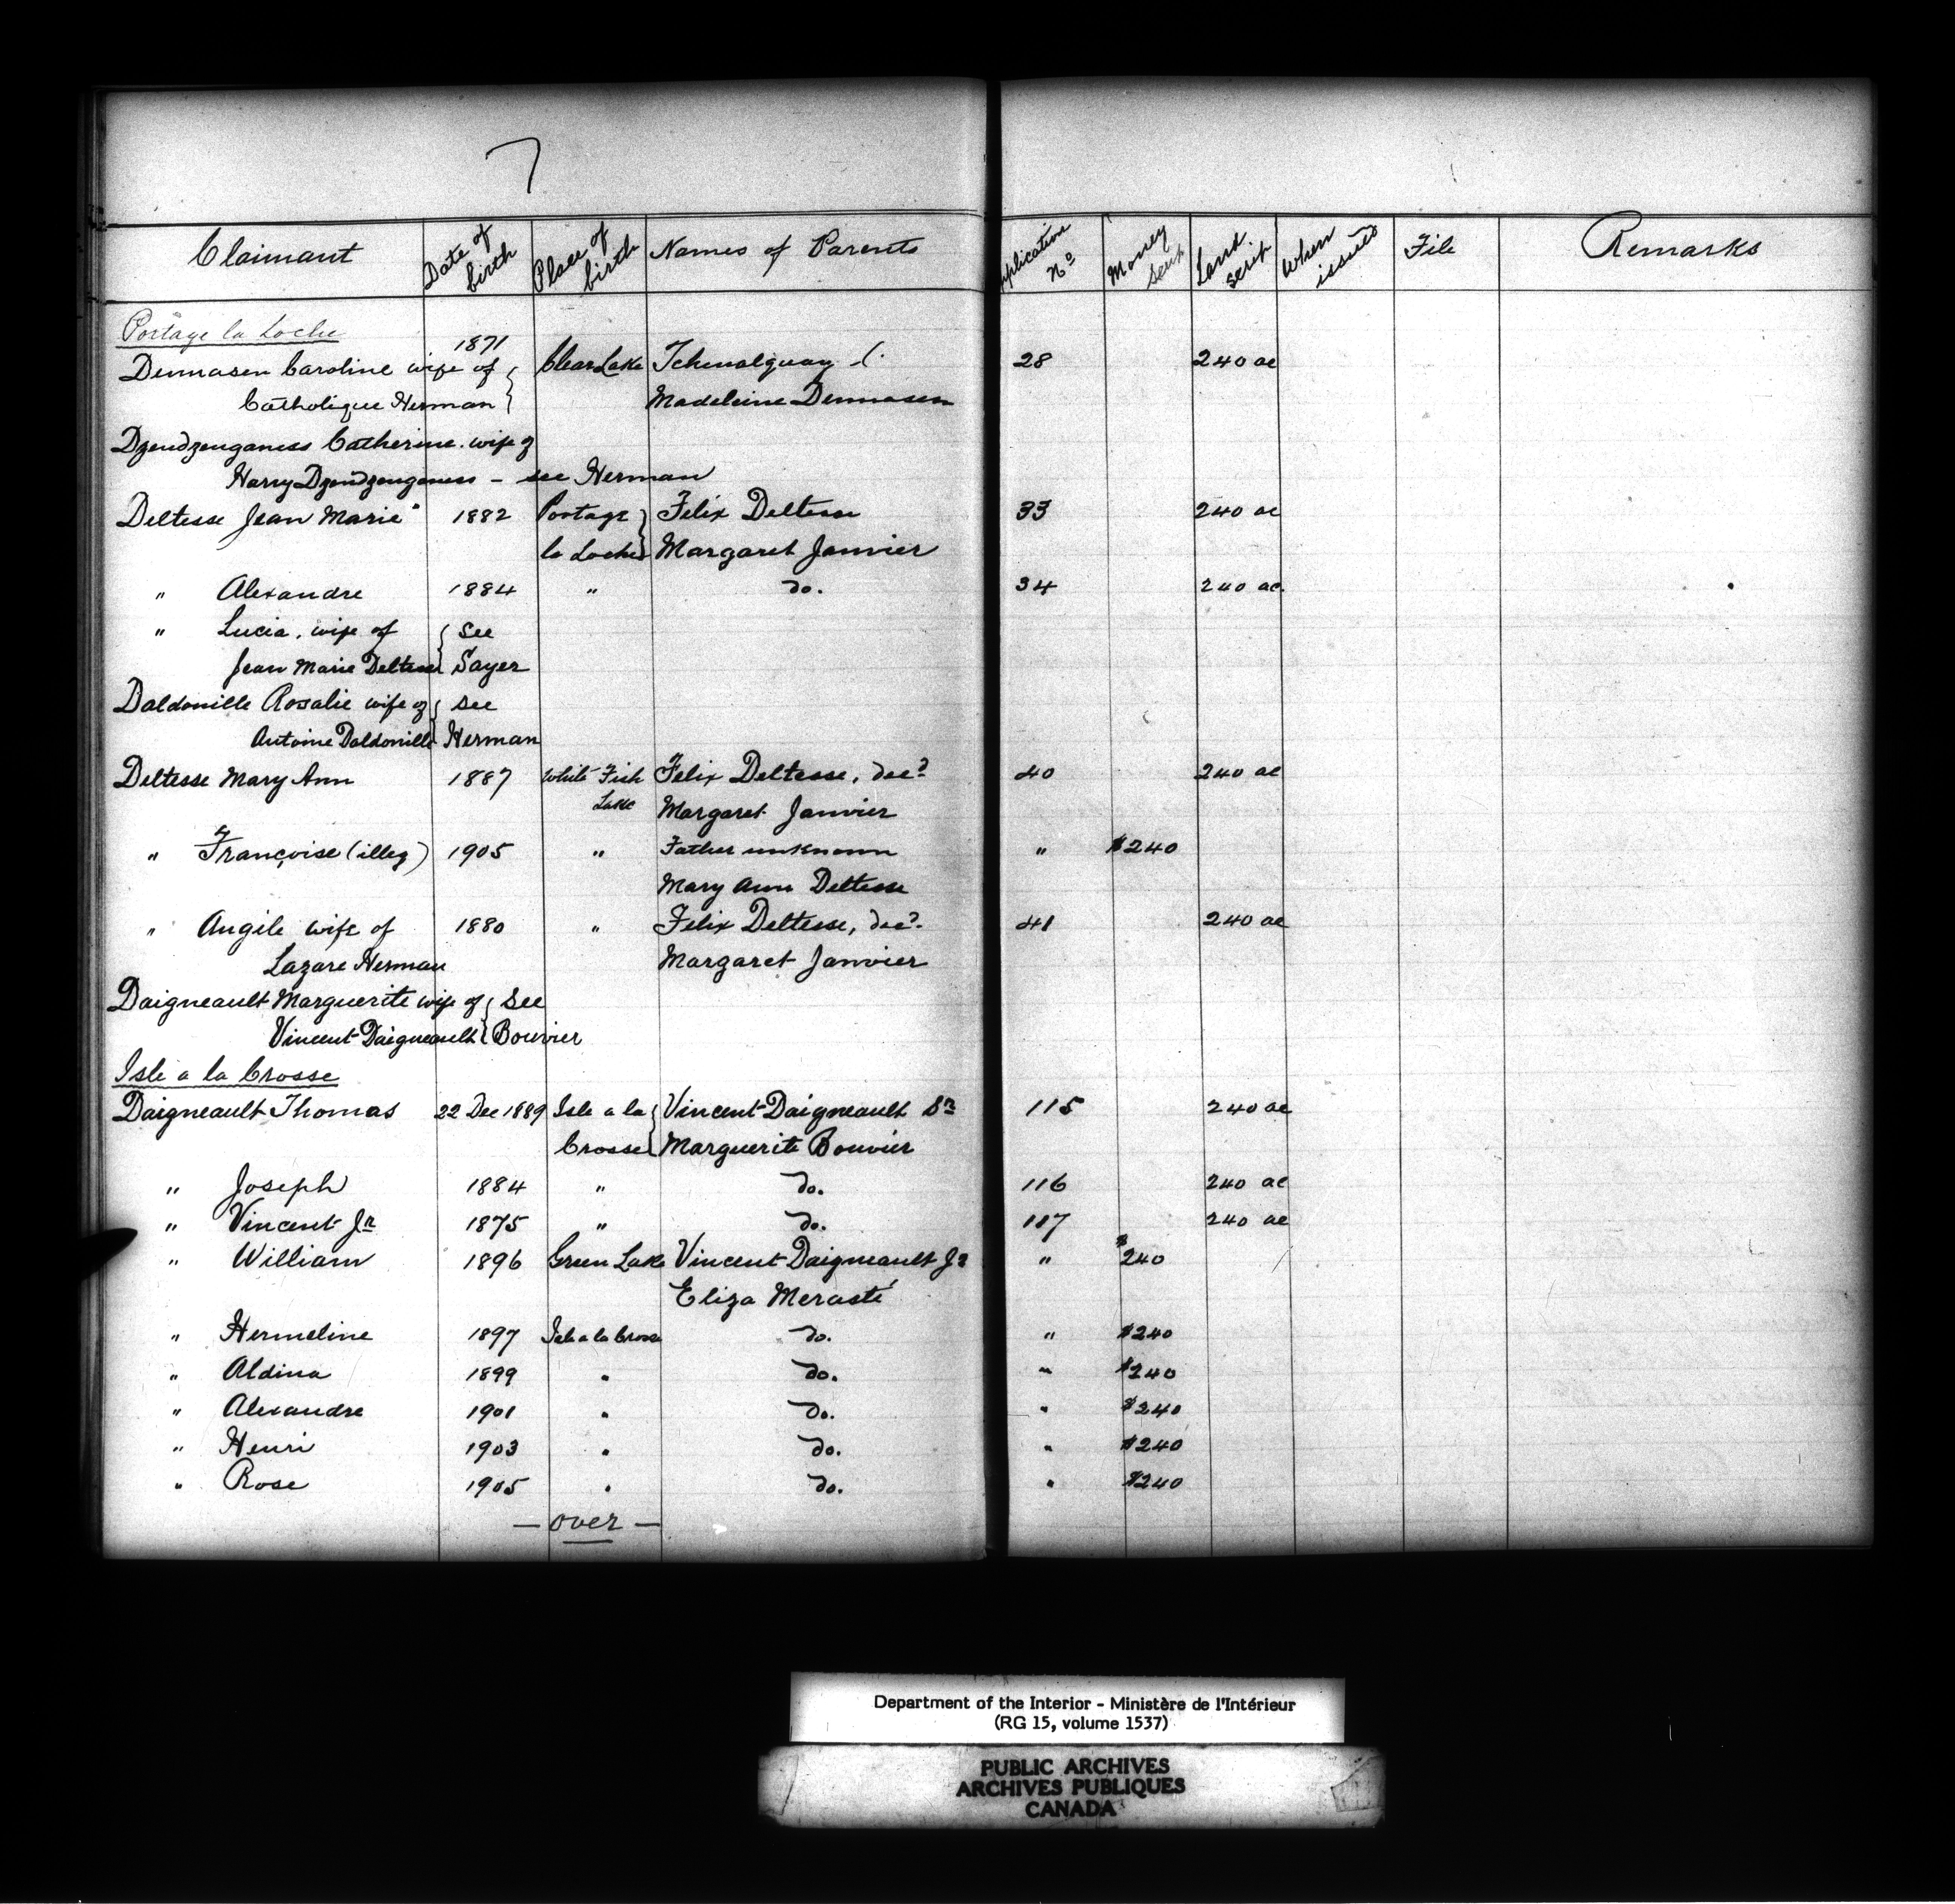 7
Claimant Date of birth Place of birth Names of Parents Application No Money scrip Land scrip When issued File Remarks
Portage la Loche
1871
Dennasen Caroline wife of Clear Lake 28 240 ac
Catholique Herman Madeleine Dennasen
Dzendzenganess Catherine. wife of
Harry Dzendzenganess - see Herman
Deltesse Jean Marie 1882 Portage Felix Deltesse 33 240 ac
la Loche Margaret Janvier
" Alexandre 1884 " do. 34 240 ac.
" Lucia, wife of see
Jean Marie Deltesse Sayer
Daldonille Rosalie wife of see
Antoine Daldonille Herman
Deltesse Mary Ann 1887 White Fish Felix Deltesse, decd 40 240 ac
Lake Margaret Janvier
" Françoise (illeg) 1905 " Father unknown " $240
Mary Ann Deltesse
" Angile wife of 1880 " Felix Deltesse, decd. 41 240 ac
Lazare Herman Margaret Janvier
Daigneault Marguerite wife of see
Vincent Daigneault Bouvier
Isle a la Crosse
Daigneault Thomas 22 Dec 1889 Isle a la Vincent Daigneault Sr 115 240 ac
Crosse Marguerite Bouvier
" Joseph 1884 " do. 116 240 ac
" Vincent Jr 1875 " do. 117 240 ac
" William 1896 Green Lake Vincent Daigneault Jr " $240
Eliza Merasté
" Hermeline 1897 Isle a la Crosse do. " $240
" Aldina 1899 " do. " $240
" Alexandre 1901 " do. " $240
" Henri 1903 " do. " $240
" Rose 1905 " do. " $240
- over -
Department of the Interior - Ministère de l'Intérieur
(RG 15, volume 1537)
PUBLIC ARCHIVES
ARCHIVES PUBLIQUES
CANADA